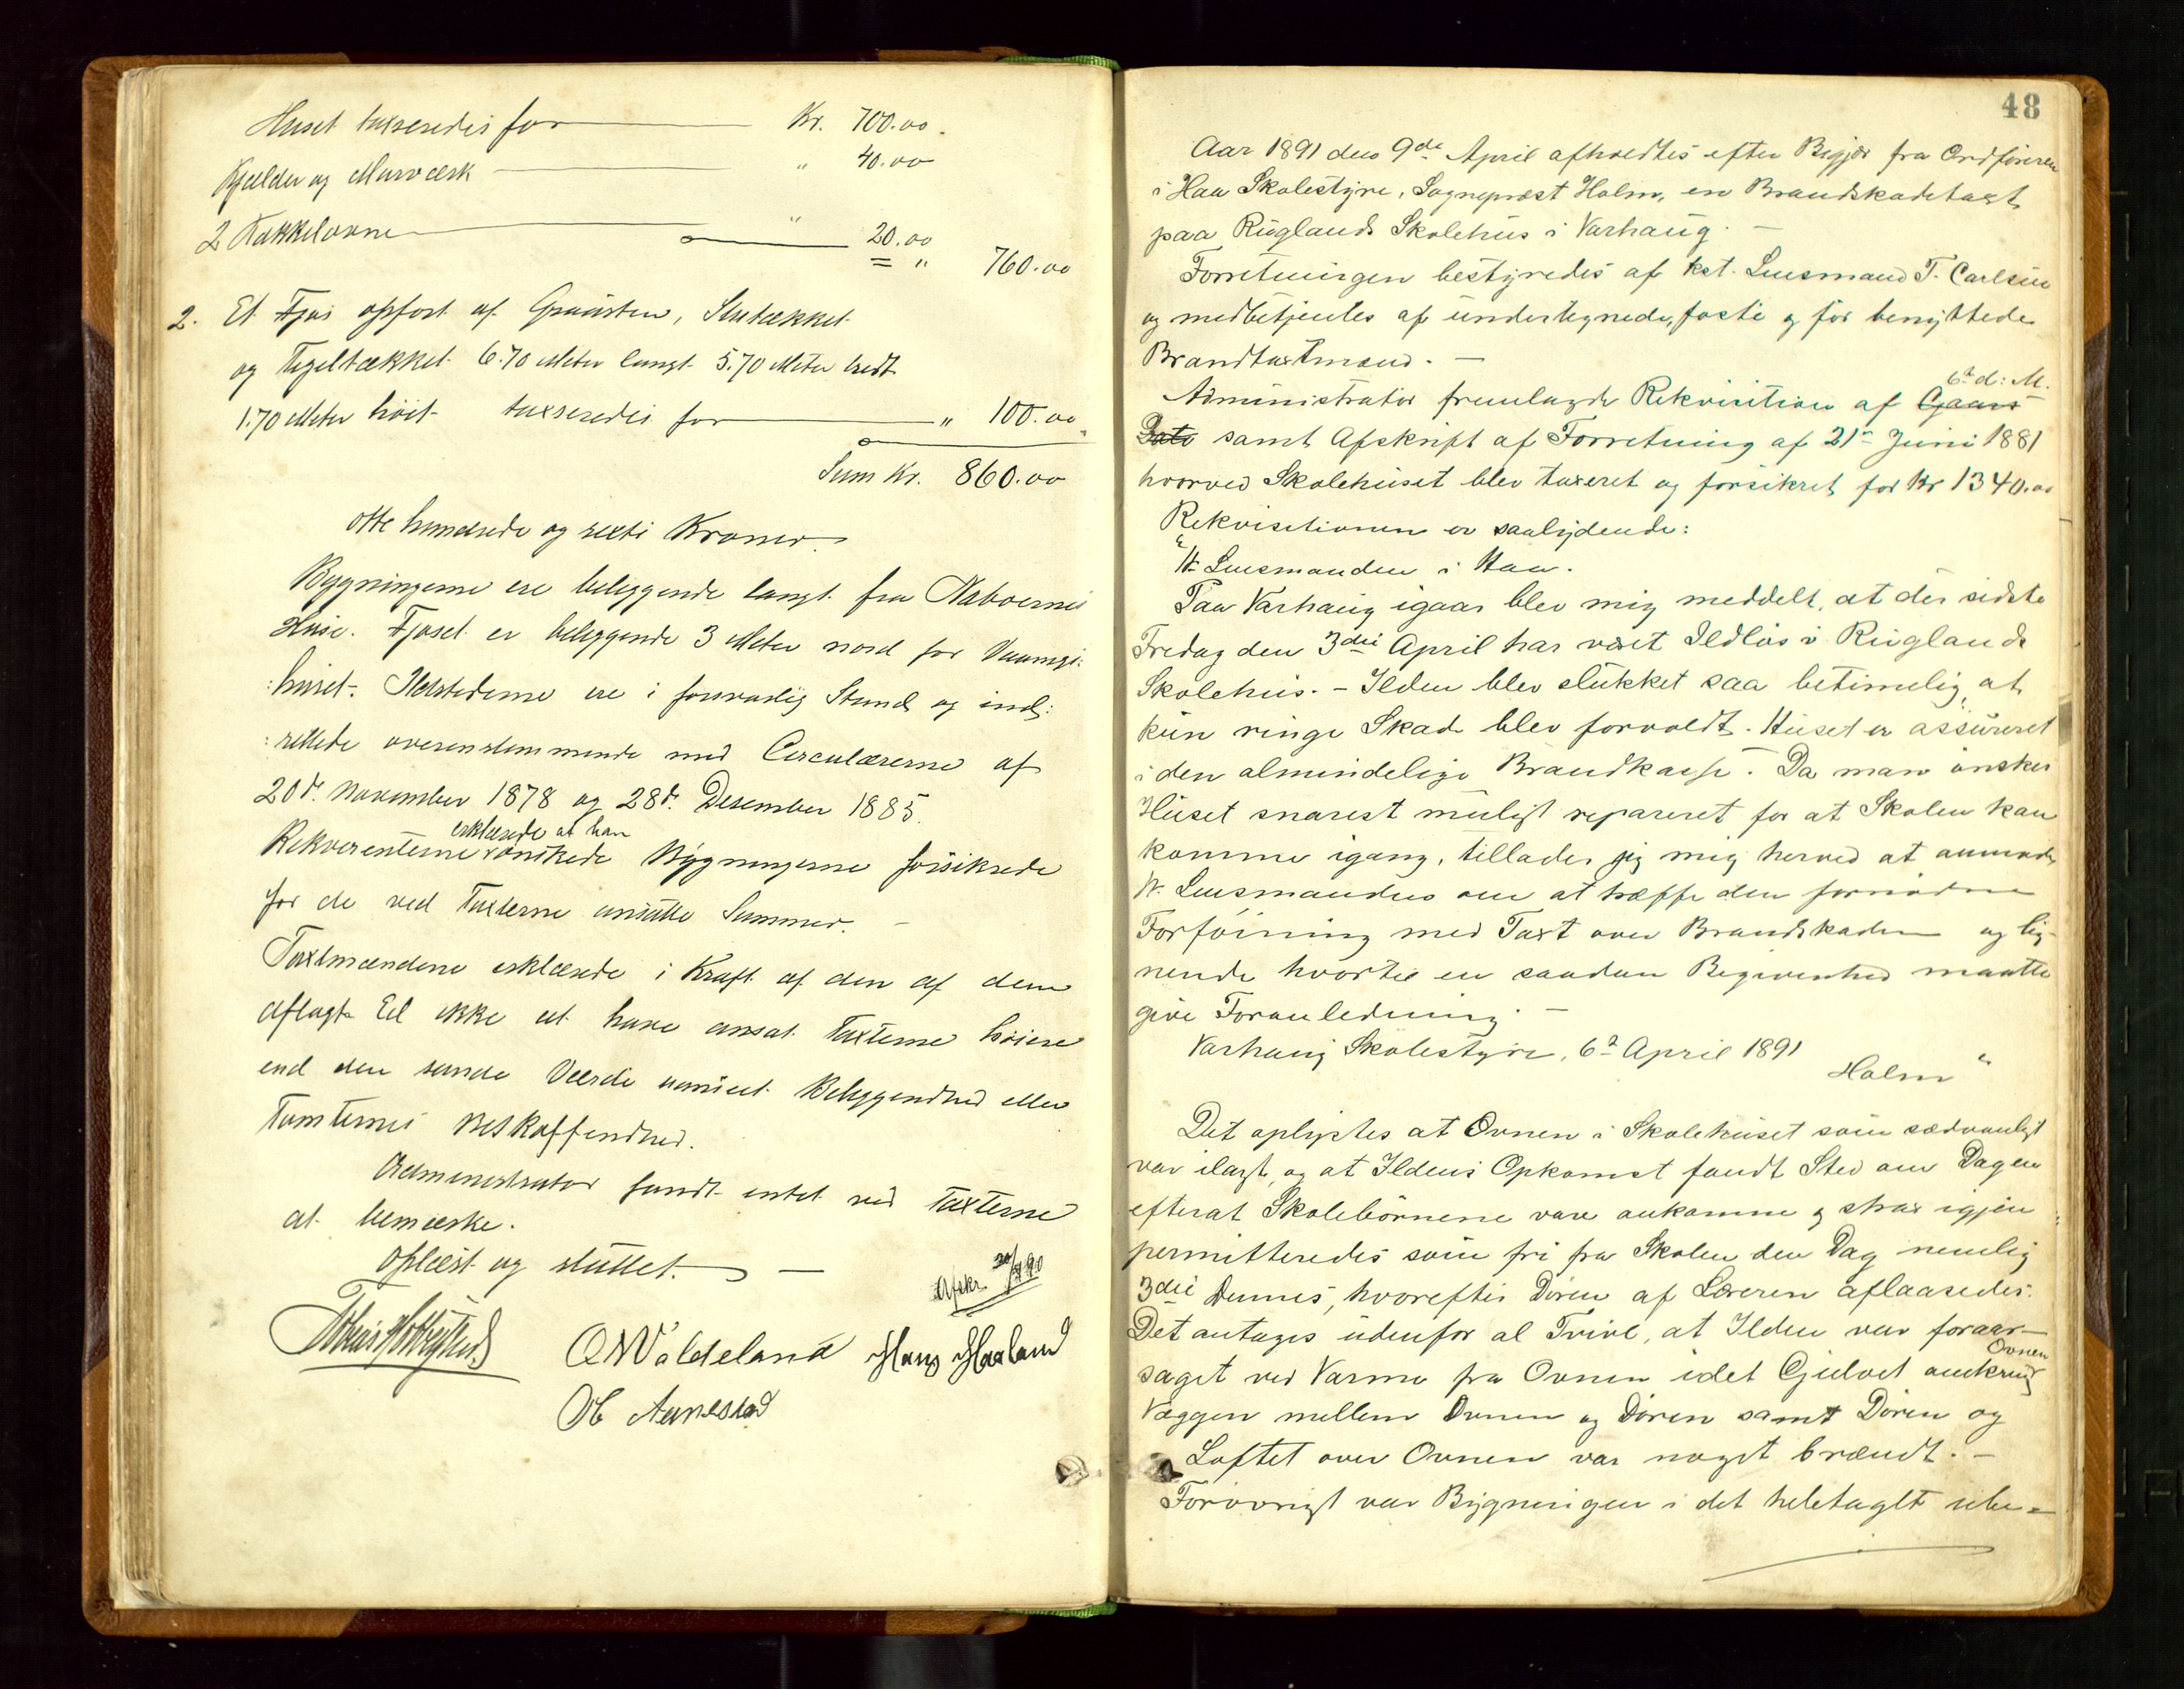 Huset taxseredes for Kr. 700.00.
Kjælder og Murværk " 40.00
2 Kakkelovne " 20.00
= " 760.00
2. Et Fjøs opført af Graasten,
og Tegeltækket 6.70 Meter langt 5.70 Meter bredt
1.70 Meter høit taxseredes for " 100.00
Sum Kr. 860.00
otte hundrede og sexti Kroner.
Bygningerne ere beliggende langt fra Naboernes
Huse. Fjøset er beliggende 3 Meter nord for Vaanings:
:huset. Ildstederne ere i forsvarlig Stand og ind:
:rettede overenstemmende med Circulærerne af
20de November 1878 og 28de Desember 1885.
erklærede at han
Rekverenterne ønskede Bygningerne forsikrede
for de ved Taxterne ansatte Summer. –
Taxtmændene erklærede i Kraft af den af dem
aflagte Ed ikke at have ansat Taxterne høiere
end den sande Værdi uanseet Beliggendhed eller
Tomternes Beskaffendhed.
Administrator fandt intet ved Taxterne
at bemærke.
Oplæst og sluttet. –
Afskr.
O N Valdeland Hans Haaland
48
Aar 1891 den 9de April afholdtes efter Begjær fra Ordføreren
i Haa Skolestyre, Sognepræst Holm, en Brandskadetaxt
paa Ruglands Skolehus i Varhaug. –
Forretningen bestyredes af kst. Lensmand T. Carlsen
og medbetjentes af undertegnede, faste og før benyttede
Brandtaxtmænd. –
6te d: M.
Administrator fremlagde Rekvisition af Gaars
Dato samt Afskrift af Forretning af 21de Juni 1881
hvorved Skolehuset blev taxeret og forsikret for Kr 1340.00
Rekvisitionen er saalydende:
"Hr. Lensmanden i Haa.
Paa Varhaug igaar blev mig meddelt, at der sidste
Fredag den 3die April har været Ildløs i Ruglands
Skolehus. – Ilden blev slukket saa betimelig, at
kun ringe Skade blev forvoldt. Huset er assureret
i den almindelige Brandkasse. Da man ønsker
Huset snarest muligt repareret for at Skolen kan
komme igang, tillader jeg mig herved at anmode
Hr. Lensmanden om at træffe den fornødne
Forføining med Taxt over Brandskaden og lig-
nende hvortil en saadan Begivenhed maatte
give Foranledning. –
Varhaug Skolestyre, 6te April 1891
Holm "
Det oplystes at Ovnen i Skolehuset som sædvanligt
var ilagt, og at Ildens Opkomst fandt Sted om Dagen
efterat Skolebørnene vare ankomne og strax igjen
permitteredes som fri fra Skolen den Dag nemlig
3die Dennes, hvorefter Døren af Læreren aflaasedes.
Det antages udenfor al Tvivl, at Ilden var foraar-
saget ved Varme fra Ovnen idet Gulvet omkring Ovnen
Væggen mellem Ovnen og Døren samt Døren og
Loftet over Ovnen var noget brændt. –
Forøvrigt var Bygningen i det heletaget ube-